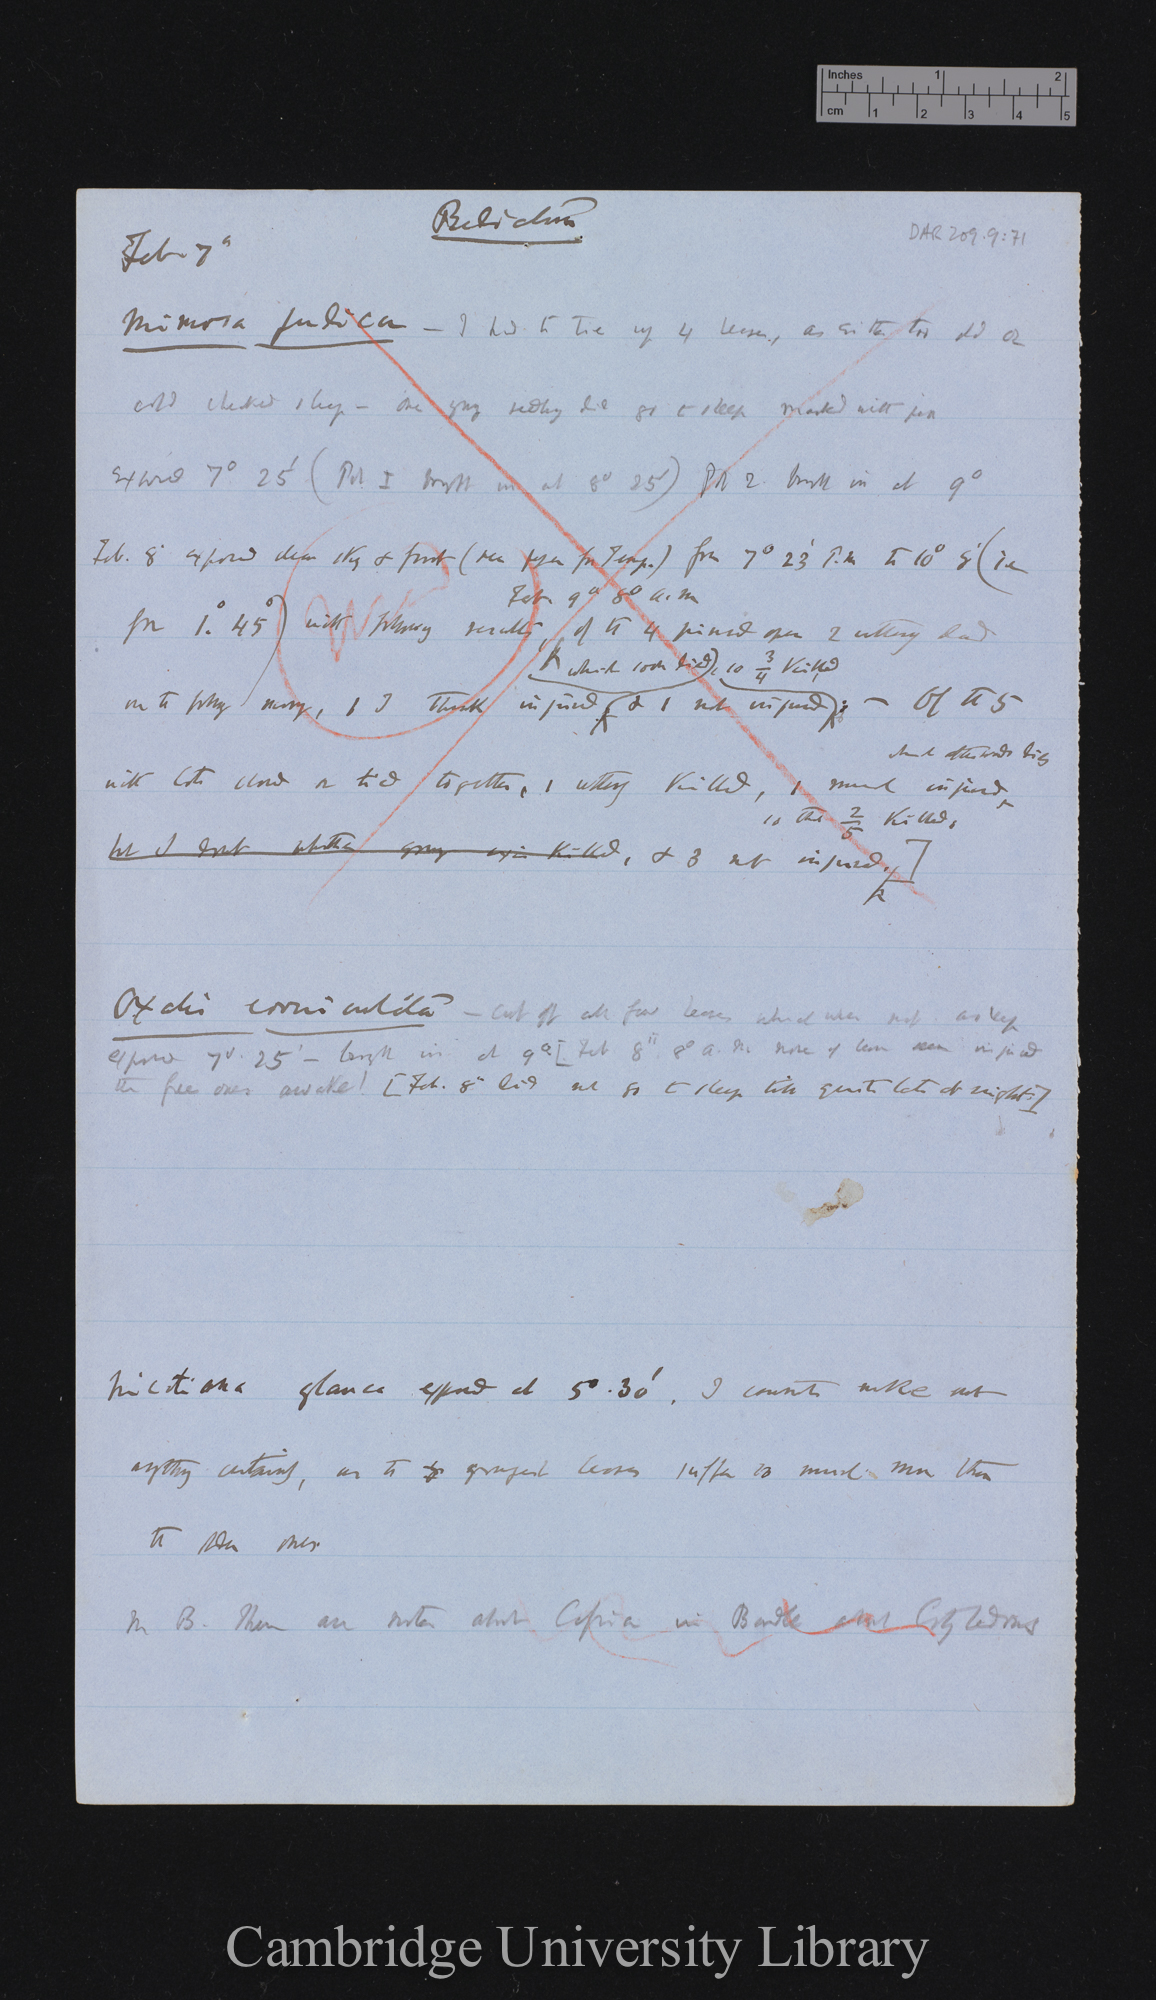 Inches 1 2
cm 1 2 3 4 5
Radiation
DAR 209.9:71
Feb 7th
Mimosa pudica — I had to tie up 4 leaves, as either too old or
cold checked sleep — one going to sleep marked with pin
exposed 7° 25' (Pot I brought in at 8° 25') Pot 2. brought in at 9°
Feb. 8 exposed clear sky & frost (see paper for Temp.) from 7° 23' P.m to 10° 8' (ie
Feb 9th 8° a.m
for 1° 45°) with following results, of the 4 pinned open 2 utterly dead
which soon died, so 3/4 killed
on the following morning, 1 I think injured & 1 not injured; — Of the 5
which afterwards died
with lots closed or tied together, 1 utterly killed, 1 much injured
so that 2/5 killed,
but I doubt whether killed, & 3 not injured.]
Oxalis corniculata — cut off all few leaves which were not asleep
exposed 7° 25' — brought in at 9° [Feb 8th 8° a.m. none of leaves seem injured
the free ones awake! [Feb. 8th did not go to sleep till quite late at night.]
Nicotiana glauca exposed at 5° 30'. I cannot make out
anything certainly, as the youngest leaves suffer so much more than
the older ones
N B. There are notes about Cassia in Bundle about Cotyledons
Cambridge University Library